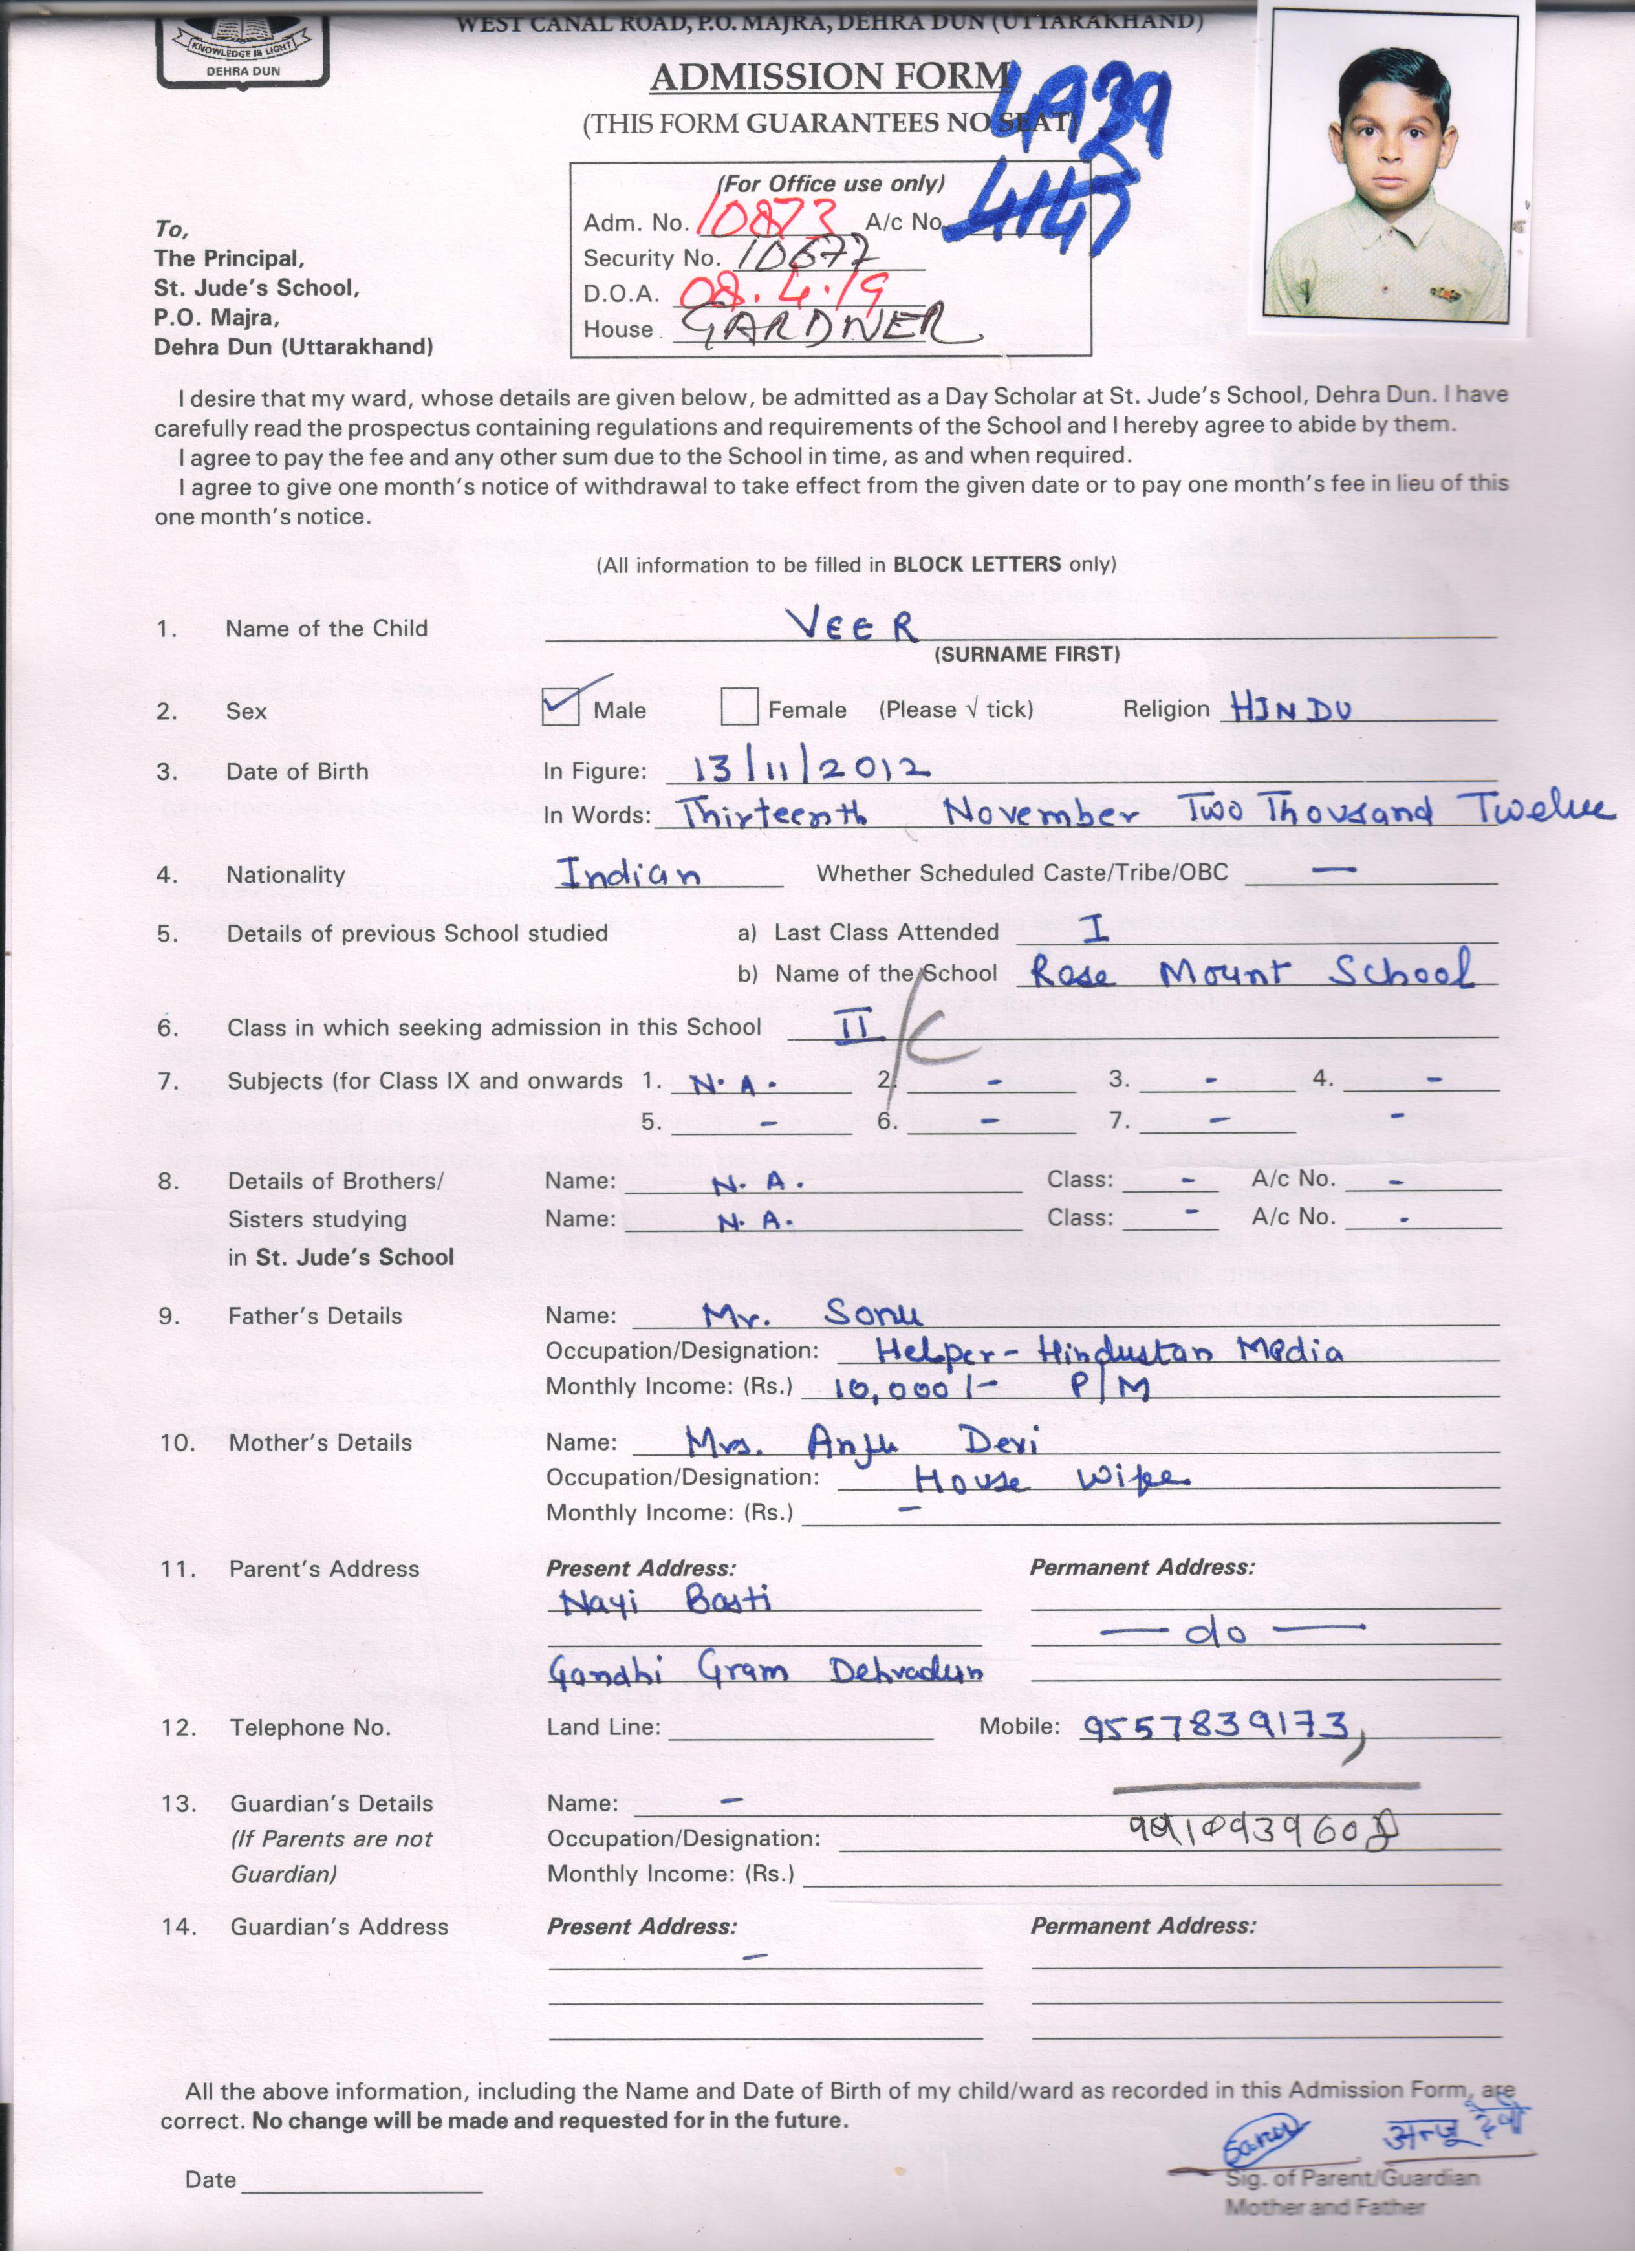 WEST CANAL ROAD, P.O. MAJRA, DEHRA DUN (UTTARAKHAND)
KNOWLEDGE IS LIGHT
DEHRA DUN
ADMISSION FORM
4939
(THIS FORM GUARANTEES NO SEAT)
(For Office use only)
Adm. No. 10873 A/c No. 4147
Security No. 10677
D.O.A. 08.4.19
House GARDNER
To,
The Principal,
St. Jude's School,
P.O. Majra,
Dehra Dun (Uttarakhand)
I desire that my ward, whose details are given below, be admitted as a Day Scholar at St. Jude's School, Dehra Dun. I have
carefully read the prospectus containing regulations and requirements of the School and I hereby agree to abide by them.
I agree to pay the fee and any other sum due to the School in time, as and when required.
I agree to give one month's notice of withdrawal to take effect from the given date or to pay one month's fee in lieu of this
one month's notice.
(All information to be filled in BLOCK LETTERS only)
1. Name of the Child VEER
(SURNAME FIRST)
2. Sex ✓ Male Female (Please √ tick) Religion HINDU
3. Date of Birth In Figure: 13/11/2012
In Words: Thirteenth November Two Thousand Twelve
4. Nationality Indian Whether Scheduled Caste/Tribe/OBC —
5. Details of previous School studied a) Last Class Attended I
b) Name of the School Rose Mount School
6. Class in which seeking admission in this School II / C
7. Subjects (for Class IX and onwards 1. N.A. 2. - 3. - 4. -
5. - 6. - 7. - -
8. Details of Brothers/ Name: N.A. Class: - A/c No. -
Sisters studying Name: N.A. Class: - A/c No. -
in St. Jude's School
9. Father's Details Name: Mr. Sonu
Occupation/Designation: Helper - Hindustan Media
Monthly Income: (Rs.) 10,000/- P/M
10. Mother's Details Name: Mrs. Anju Devi
Occupation/Designation: House Wife
Monthly Income: (Rs.) -
11. Parent's Address Present Address: Permanent Address:
Nayi Basti
— do —
Gandhi Gram Dehradun
12. Telephone No. Land Line: Mobile: 9557839173,
13. Guardian's Details Name: -
(If Parents are not Occupation/Designation:
Guardian) Monthly Income: (Rs.)
14. Guardian's Address Present Address: Permanent Address:
-
All the above information, including the Name and Date of Birth of my child/ward as recorded in this Admission Form, are
correct. No change will be made and requested for in the future.
अन्जू देवी
Date
Sig. of Parent/Guardian
Mother and Father